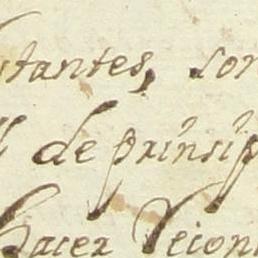 stantes, son
de prinsip
hacer Vecon